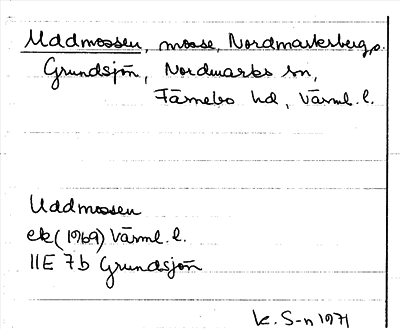 Uddmossen, mosse, Nordmarksberg,
Grundsjön, Nordmarks sn,
Färnebo hd, Värml. l.
Uddmossen
ek (1969) Värml. l.
11E 7b Grundsjön
K. S-n 1971